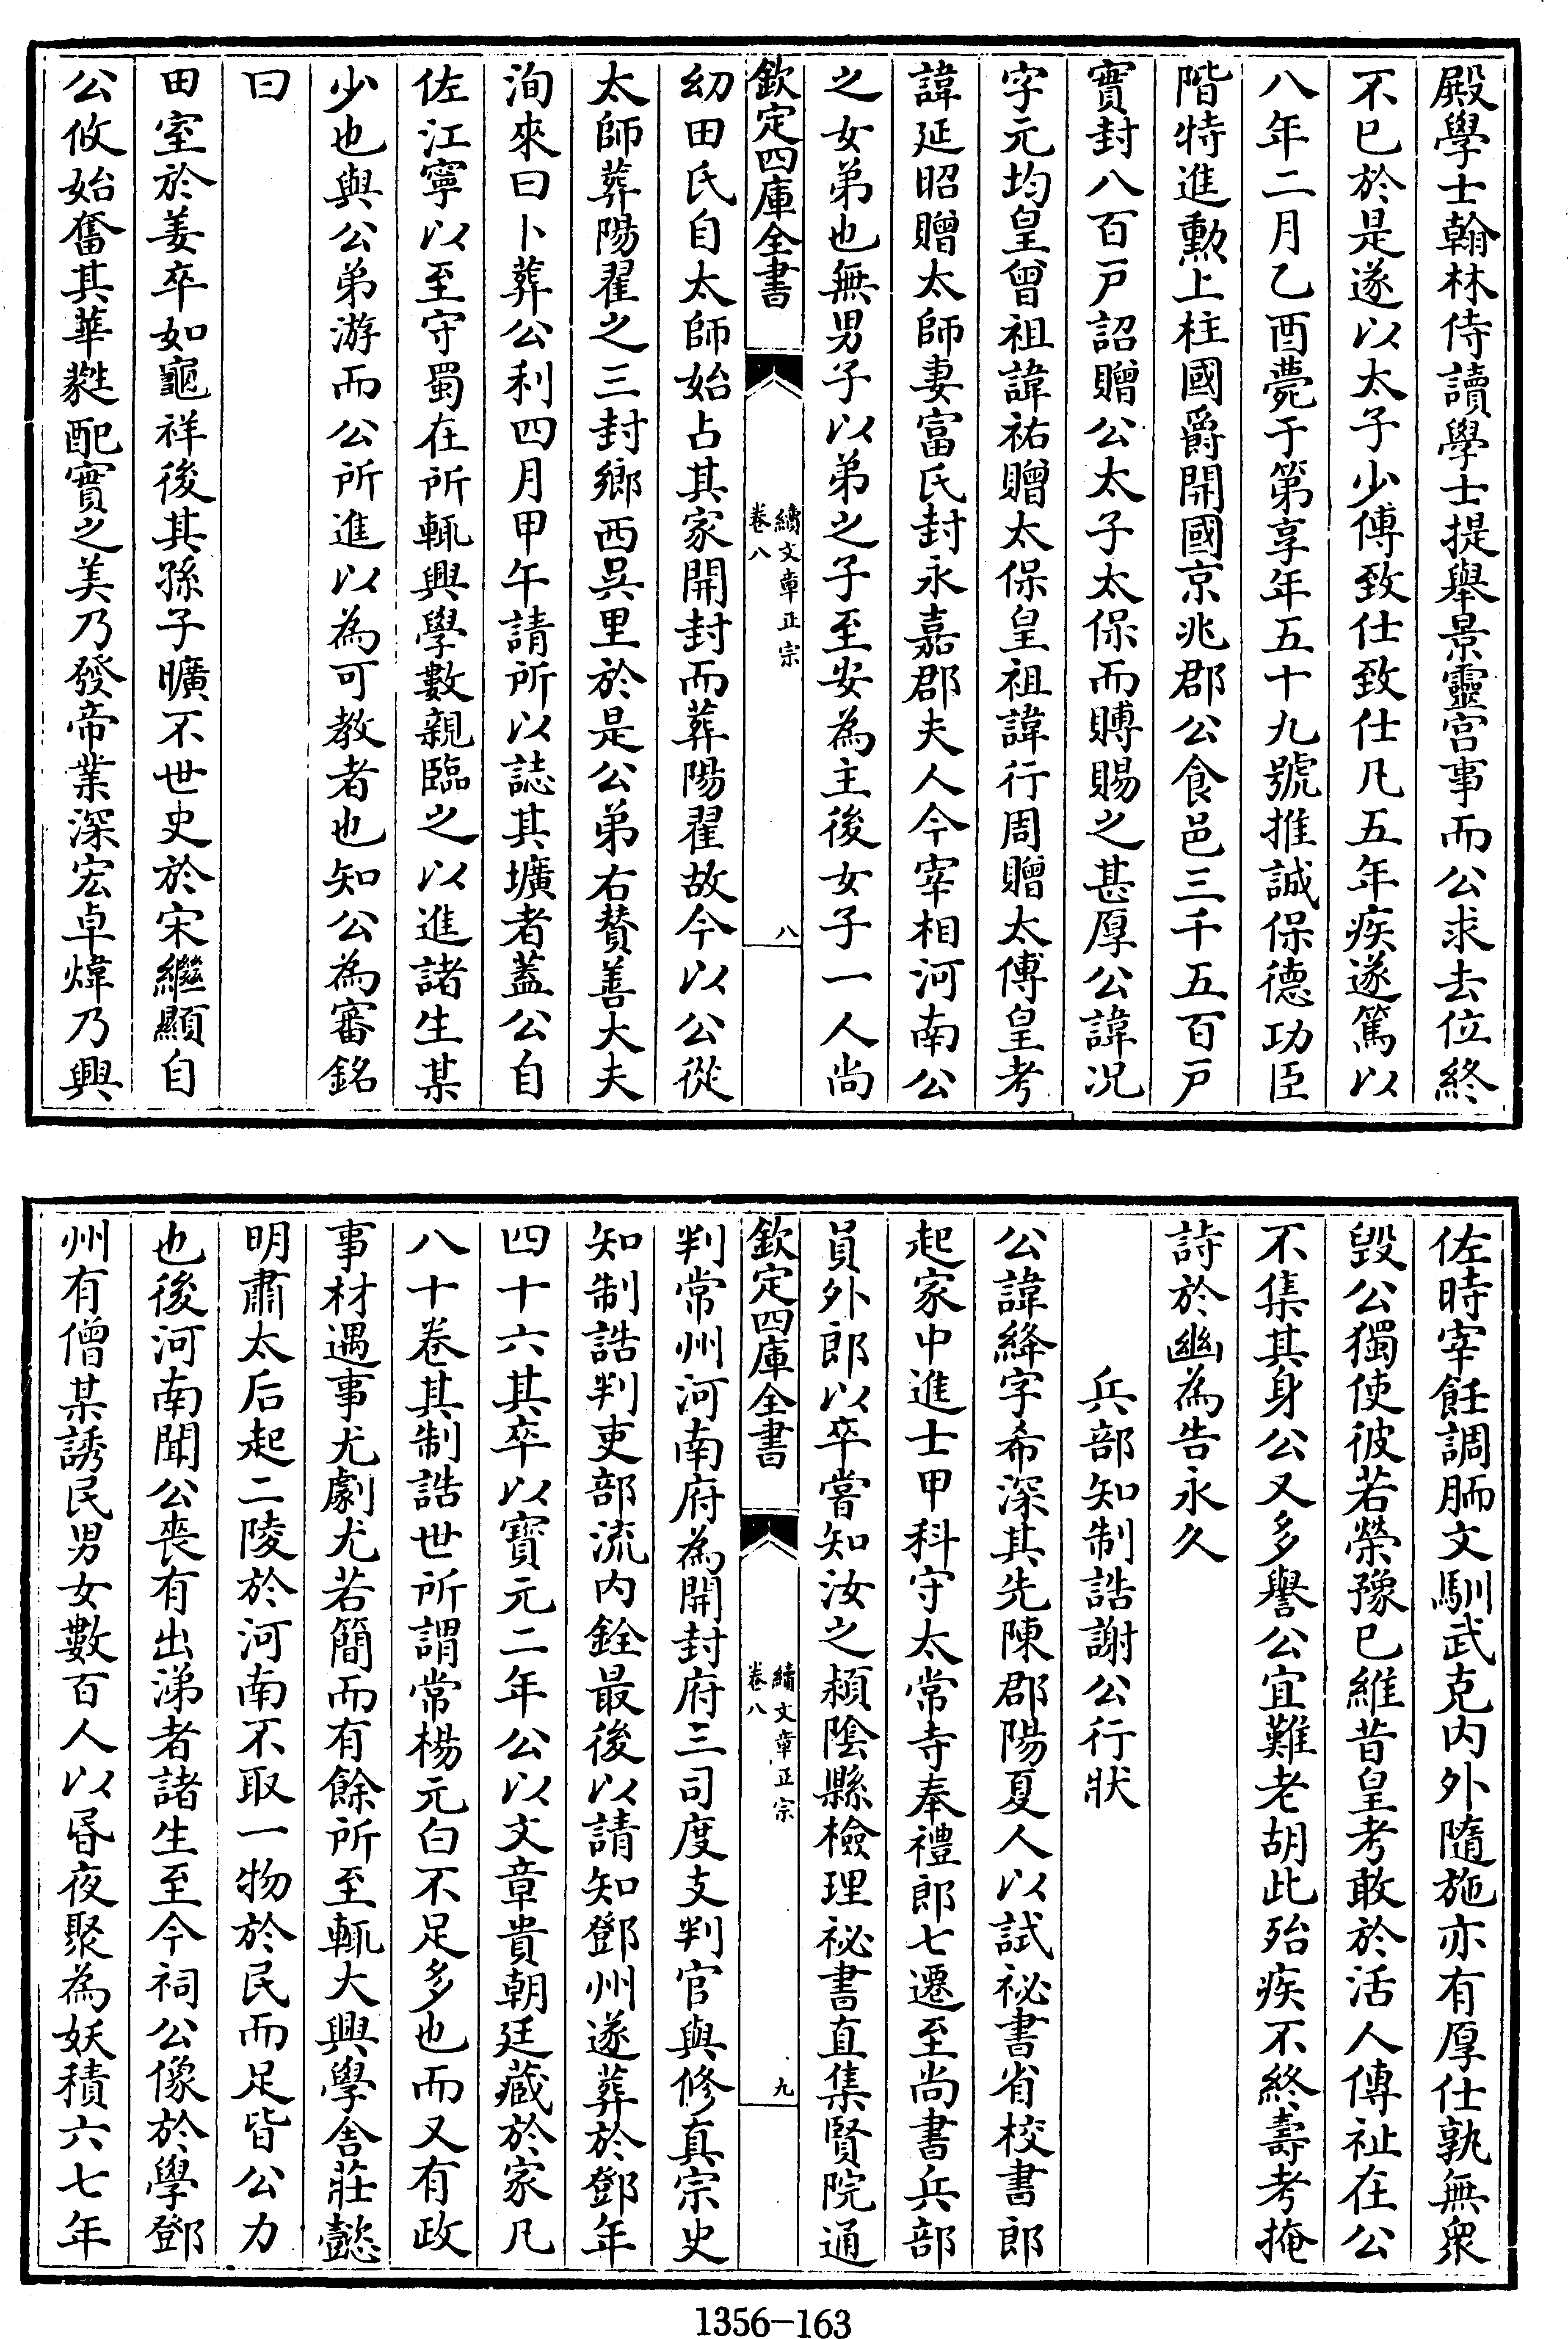 殿學士翰林侍讀學士提舉景靈宮事而公求去位終
不已於是遂以太子少傅致仕致仕凡五年疾遂篤以
八年二月乙酉薨于第享年五十九號推誠保德功臣
階特進勲上柱國爵開國京兆郡公食邑三千五百戸
實封八百戸詔贈公太子太保而賻賜之甚厚公諱况
字元均皇曾祖諱祐贈太保皇祖諱行周贈太傅皇考
諱延昭贈太師妻富氏封永嘉郡夫人今宰相河南公
之女弟也無男子以弟之子至安為主後女子一人尚
欽定四庫全書
續文章正宗
卷八
八
幼田氏自太師始占其家開封而葬陽翟故今以公從
太師葬陽翟之三封鄉西吳里於是公弟右贊善大夫
洵來曰卜葬公利四月甲午請所以誌其壙者蓋公自
佐江寧以至守蜀在所輒興學數親臨之以進諸生某
少也與公弟游而公所進以為可教者也知公為審銘
曰
田室於姜卒如龜祥後其孫子曠不世史於宋繼顯自
公攸始奮其華蕤配實之美乃發帝業深宏卓煒乃興
佐時宰飪調胹文馴武克内外隨施亦有厚仕孰無衆
毀公獨使彼若榮豫已維昔皇考敢於活人傳祉在公
不集其身公又多譽公宜難老胡此殆疾不終壽考掩
詩於幽為告永久
兵部知制誥謝公行狀
公諱絳字希深其先陳郡陽夏人以試祕書省校書郎
起家中進士甲科守太常寺奉禮郎七遷至尚書兵部
員外郎以卒嘗知汝之潁陰縣檢理祕書直集賢院通
欽定四庫全書
續文章正宗
卷八
九
判常州河南府為開封府三司度支判官與修真宗史
知制誥判吏部流内銓最後以請知鄧州遂葬於鄧年
四十六其卒以寶元二年公以文章貴朝廷藏於家凡
八十卷其制誥世所謂常楊元白不足多也而又有政
事材遇事尤劇尤若簡而有餘所至輒大興學舍莊懿
明肅太后起二陵於河南不取一物於民而足皆公力
也後河南聞公喪有出涕者諸生至今祠公像於學鄧
州有僧某誘民男女數百人以昏夜聚為妖積六七年
1356-163